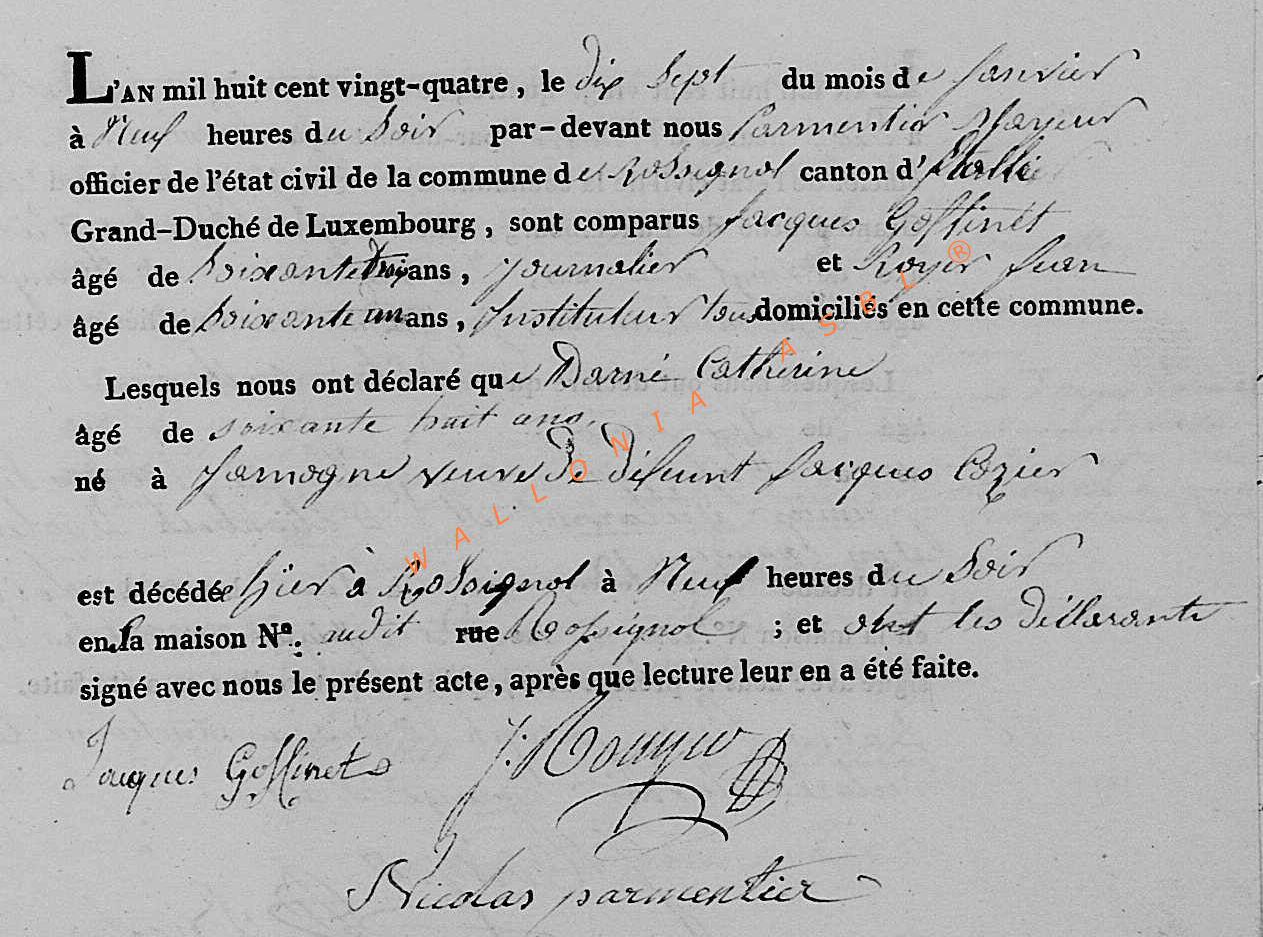 L'AN mil huit cent vingt-quatre, le dix Sept du mois de Janvier
à Neuf heures du Soir par-devant nous Parmentier Mayeur
officier de l'état civil de la commune de Rossignol canton d'Etalle
Grand-Duché de Luxembourg, sont comparus Jacques Goffinet
âgé de Soixante trois ans, Journalier et Royer Jean
âgé de Soixante un ans, Instituteur tous domiciliés en cette commune.
Lesquels nous ont déclaré que Darné Catherine
âgé de soixante huit ans,
né à Jamogne veuve De Défunt Jacques Cozier
est décédée hier à Rossignol à Neuf heures du Soir
en la maison Nº. audit rue Rossignol ; et ont les Déclarants
signé avec nous le présent acte, après que lecture leur en a été faite.
Jacques Goffinet J. Rouyer
Nicolas parmentier
WALLONIA ASBL ®